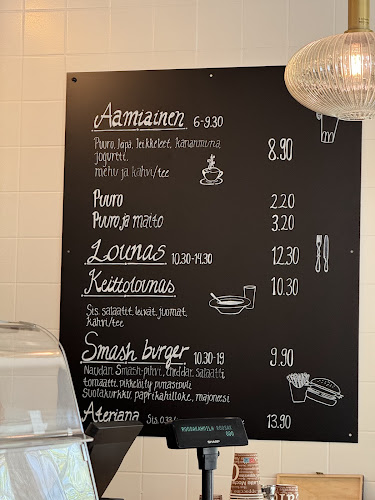 Aamiainen 6-9.30
Puuro, leipä, leikkeleet, kananmuna, 8.90
jogurtti,
mehu ja kahvi/tee
Puuro 2.20
Puuro ja maito 3.20
Lounas 10.30-14.30 12.30
Keittolounas 10.30
Sis. salaatit, leivät, juomat,
kahvi/tee
Smash burger 10.30-19 9.90
Naudan Smash-pihvi, cheddar, salaatti
tomaatti, pikkelöity punasipuli
suolakurkku, paprikahilloke, majoneesi
Ateriana Sis. 0,33 13.90
SHARP